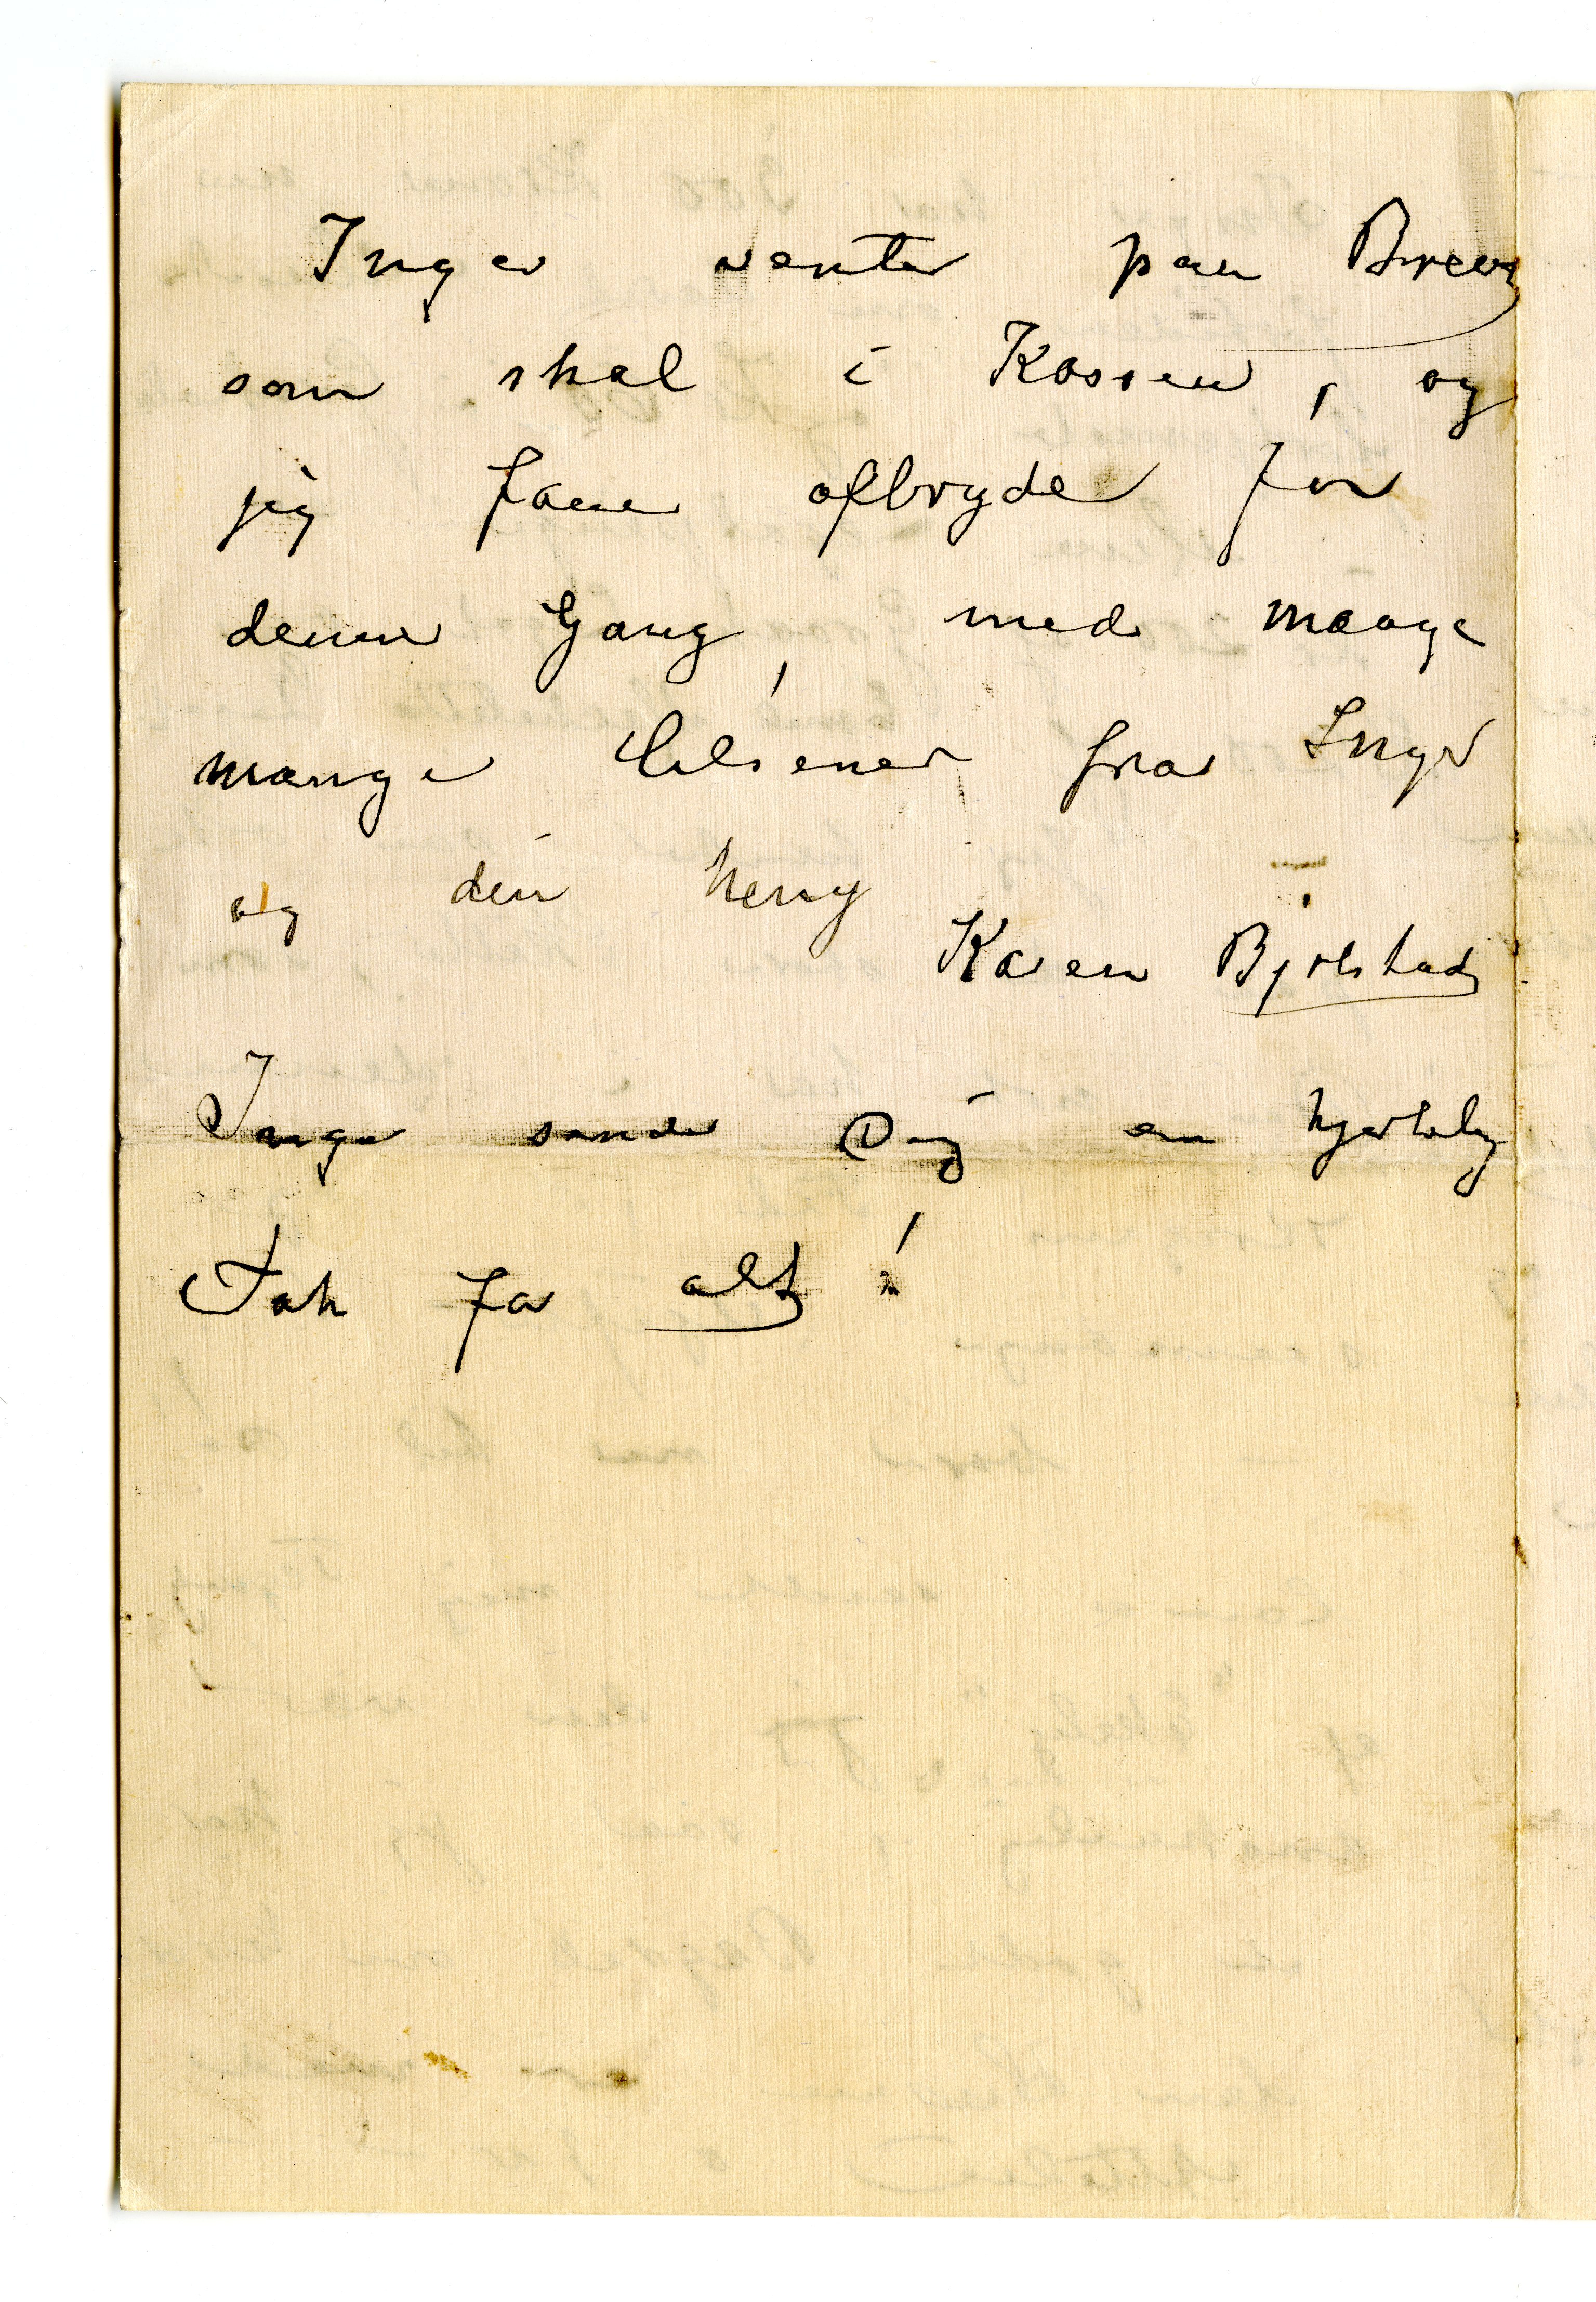 Inger venter paa Brev
som skal i Kassen, og
jeg faar afbryde for
denne Gang, med mange
mange hilsener fra Inger
og din heng
Karen Bjølstad
Inger sender Dig en hjertelig
Tak for alt!